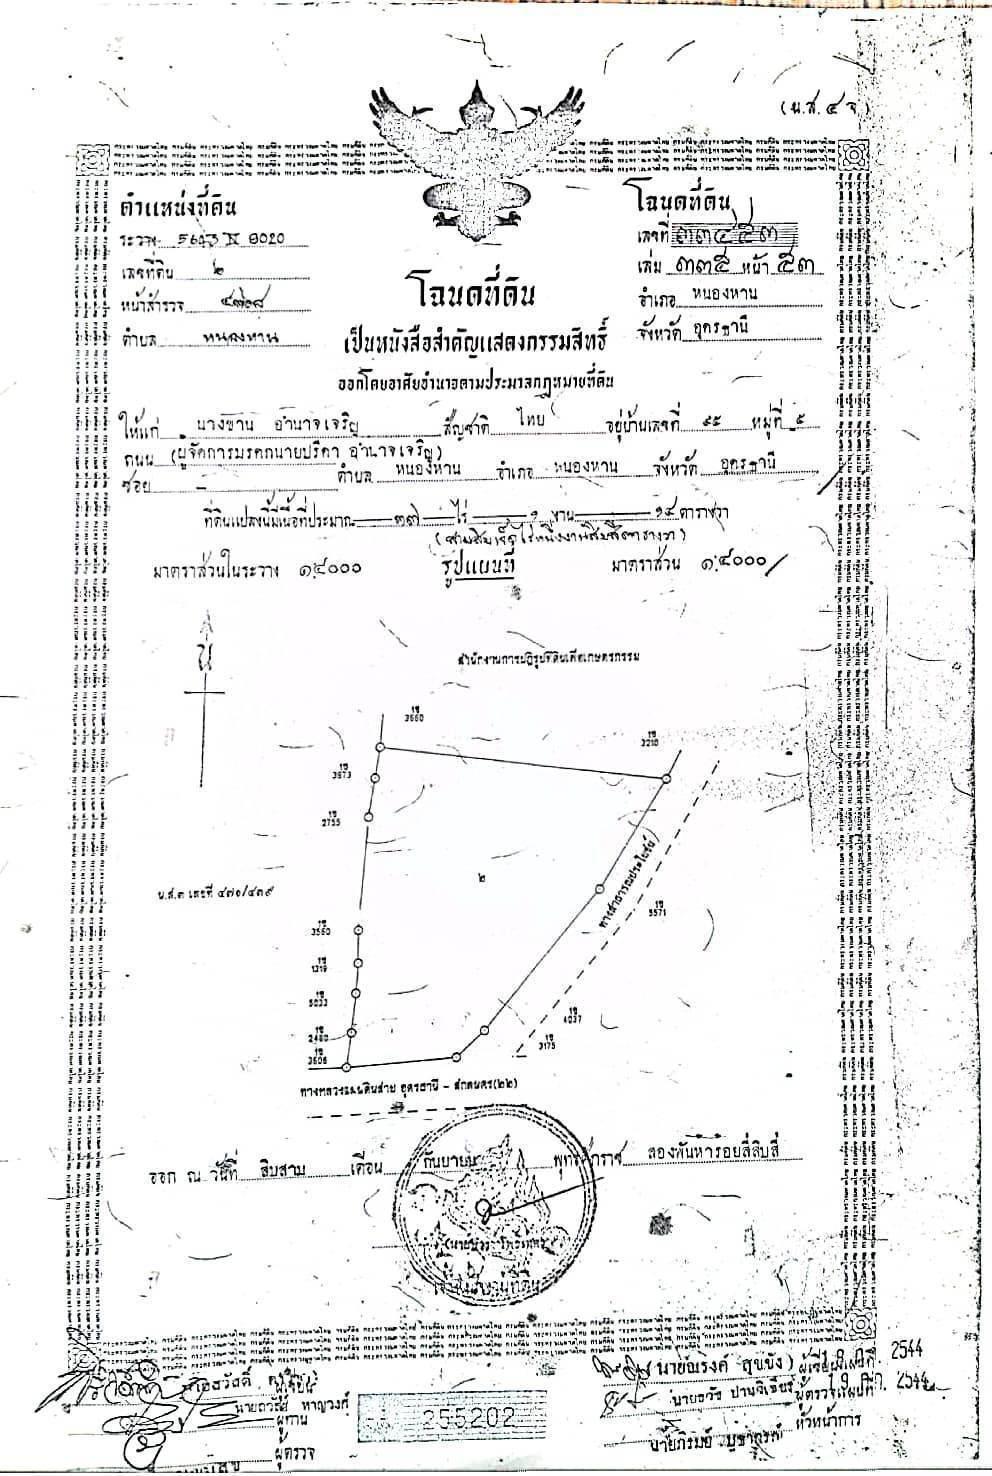 (น.ส.๔ จ)
ตำแหน่งที่ดิน
ระวาง 5643 IV 9020
เลขที่ดิน ๒
หน้าสำรวจ
ตำบล หนองหาน
โฉนดที่ดิน
เลขที่ ๓๓๔๕๓
เล่ม ๓๓๕ หน้า ๕๓
อำเภอ หนองหาน
จังหวัด อุดรธานี
โฉนดที่ดิน
เป็นหนังสือสำคัญแสดงกรรมสิทธิ์
ออกโดยอาศัยอำนาจตามประมวลกฎหมายที่ดิน
ให้แก่ อำนาจเจริญ สัญชาติ ไทย อยู่บ้านเลขที่ ๙๕ หมู่ที่ ๕
ถนน (ผู้จัดการมรดกนายปรีดา อำนาจเจริญ)
ซอย – ตำบล หนองหาน อำเภอ หนองหาน จังหวัด อุดรธานี
ที่ดินแปลงนี้มีเนื้อที่ประมาณ ๓๗ ไร่ ๑ งาน ๑๔ ตารางวา
(สามสิบเจ็ดไร่หนึ่งงานสิบสี่ตารางวา)
มาตราส่วนในระวาง ๑:๔๐๐๐ รูปแผนที่ มาตราส่วน ๑:๔๐๐๐
น
สำนักงานการปฏิรูปที่ดินเพื่อเกษตรกรรม
ข 3560
ข 3210
ข 3973
ข 2755
๒
น.ส.๓ เลขที่ ๔๗๐/๔๓๙
ทางสาธารณประโยชน์
ข 5571
ข 3560
ข 1319
ข 5033
ข 4037
ข 2480
ข 3175
ข 3606
ทางหลวงแผ่นดินสาย อุดรธานี - สกลนคร(๒๒)
ออก ณ วันที่ สิบสาม เดือน กันยายน พุทธศักราช สองพันห้าร้อยสี่สิบสี่
เจ้าพนักงานที่ดิน
ผู้เขียน
ผู้ทาน
ผู้ตรวจ
255202
(นายณรงค์ สุขขัง) ผู้เขียนแผนที่ 2544
ผู้ตรวจแผนที่ 2544
หัวหน้าการ